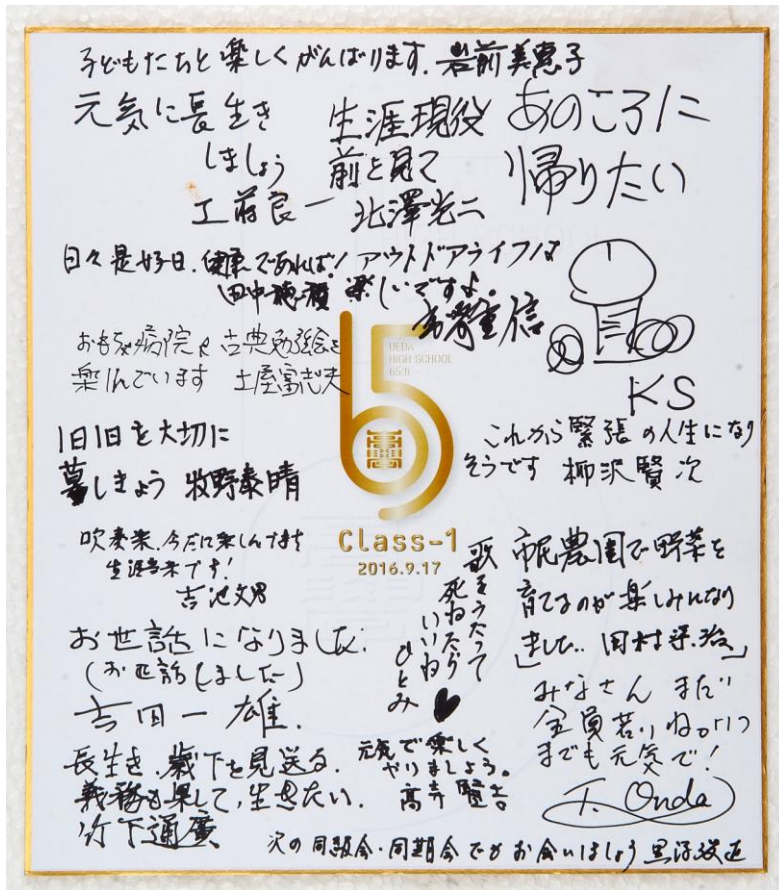 子どもたちと楽しくがんばります。岩前美恵子
元気に長生き
しましょう
工藤良一
生涯現役
前を見て
北澤光二
あのころに
帰りたい
KS
日々是好日、健康であれば!
田中
アウトドアライフは
楽しいですよ。
重信
おもちゃ病院や古典勉強会を
楽しんでいます 土屋富志夫
UEDA
HIGH SCHOOL
65th
65
Class-1
2016.9.17
1日1日を大切に
暮しましょう 牧野泰晴
これから緊張の人生になり
そうです 柳沢賢次
吹奏楽、今だに楽しんでます
生涯音楽です!
吉池文男
歌をうたって
死ねたら
いいね
ひとみ
市民農園で野菜を
育てるのが楽しみになり
ました.. 田村
お世話になりました.
(お世話しました)
吉田一雄.
みなさん まだ
全員若いね。いつ
までも元気で!
T. Onda
長生き、歳下を見送る.
義務も果して,生きたい.
竹下通廣
元気で楽しく
やりましょう。
高寺賢吉
次の同級会・同期会でもお会いしましょう